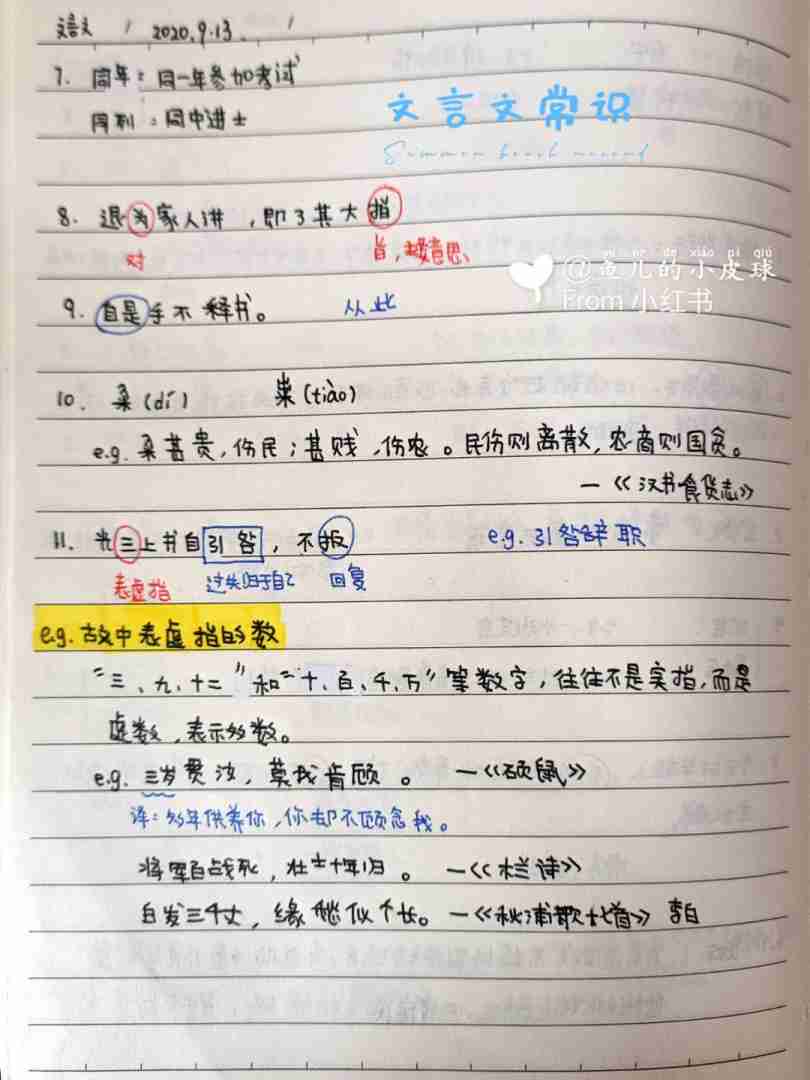 语文 / 2020.9.13. /
7. 同年：同一年参加考试
文言文常识
同列：同中进士
Summer beach record
8. 退为家人讲，即了其大指
对 旨，主要意思
yú ér de xiǎo pí qiú
@鱼儿的小皮球
From 小红书
9. 自是手不释书。 从此
10. 籴(dí) 粜(tiào)
e.g. 籴甚贵，伤民；甚贱，伤农。民伤则离散，农商则国贫。
—《汉书食货志》
11. 光三上书自引咎，不报 e.g. 引咎辞职
表虚指 过失归于自己 回复
e.g. 古文中表虚指的数
"三、九、十二"和"十、百、千、万"等数字，往往不是实指，而是
虚数，表示多数。
e.g. 三岁贯汝，莫我肯顾。—《硕鼠》
译：多年供养你，你却不顾念我。
将军百战死，壮士十年归。—《木兰诗》
白发三千丈，缘愁似个长。—《秋浦歌十七首》李白